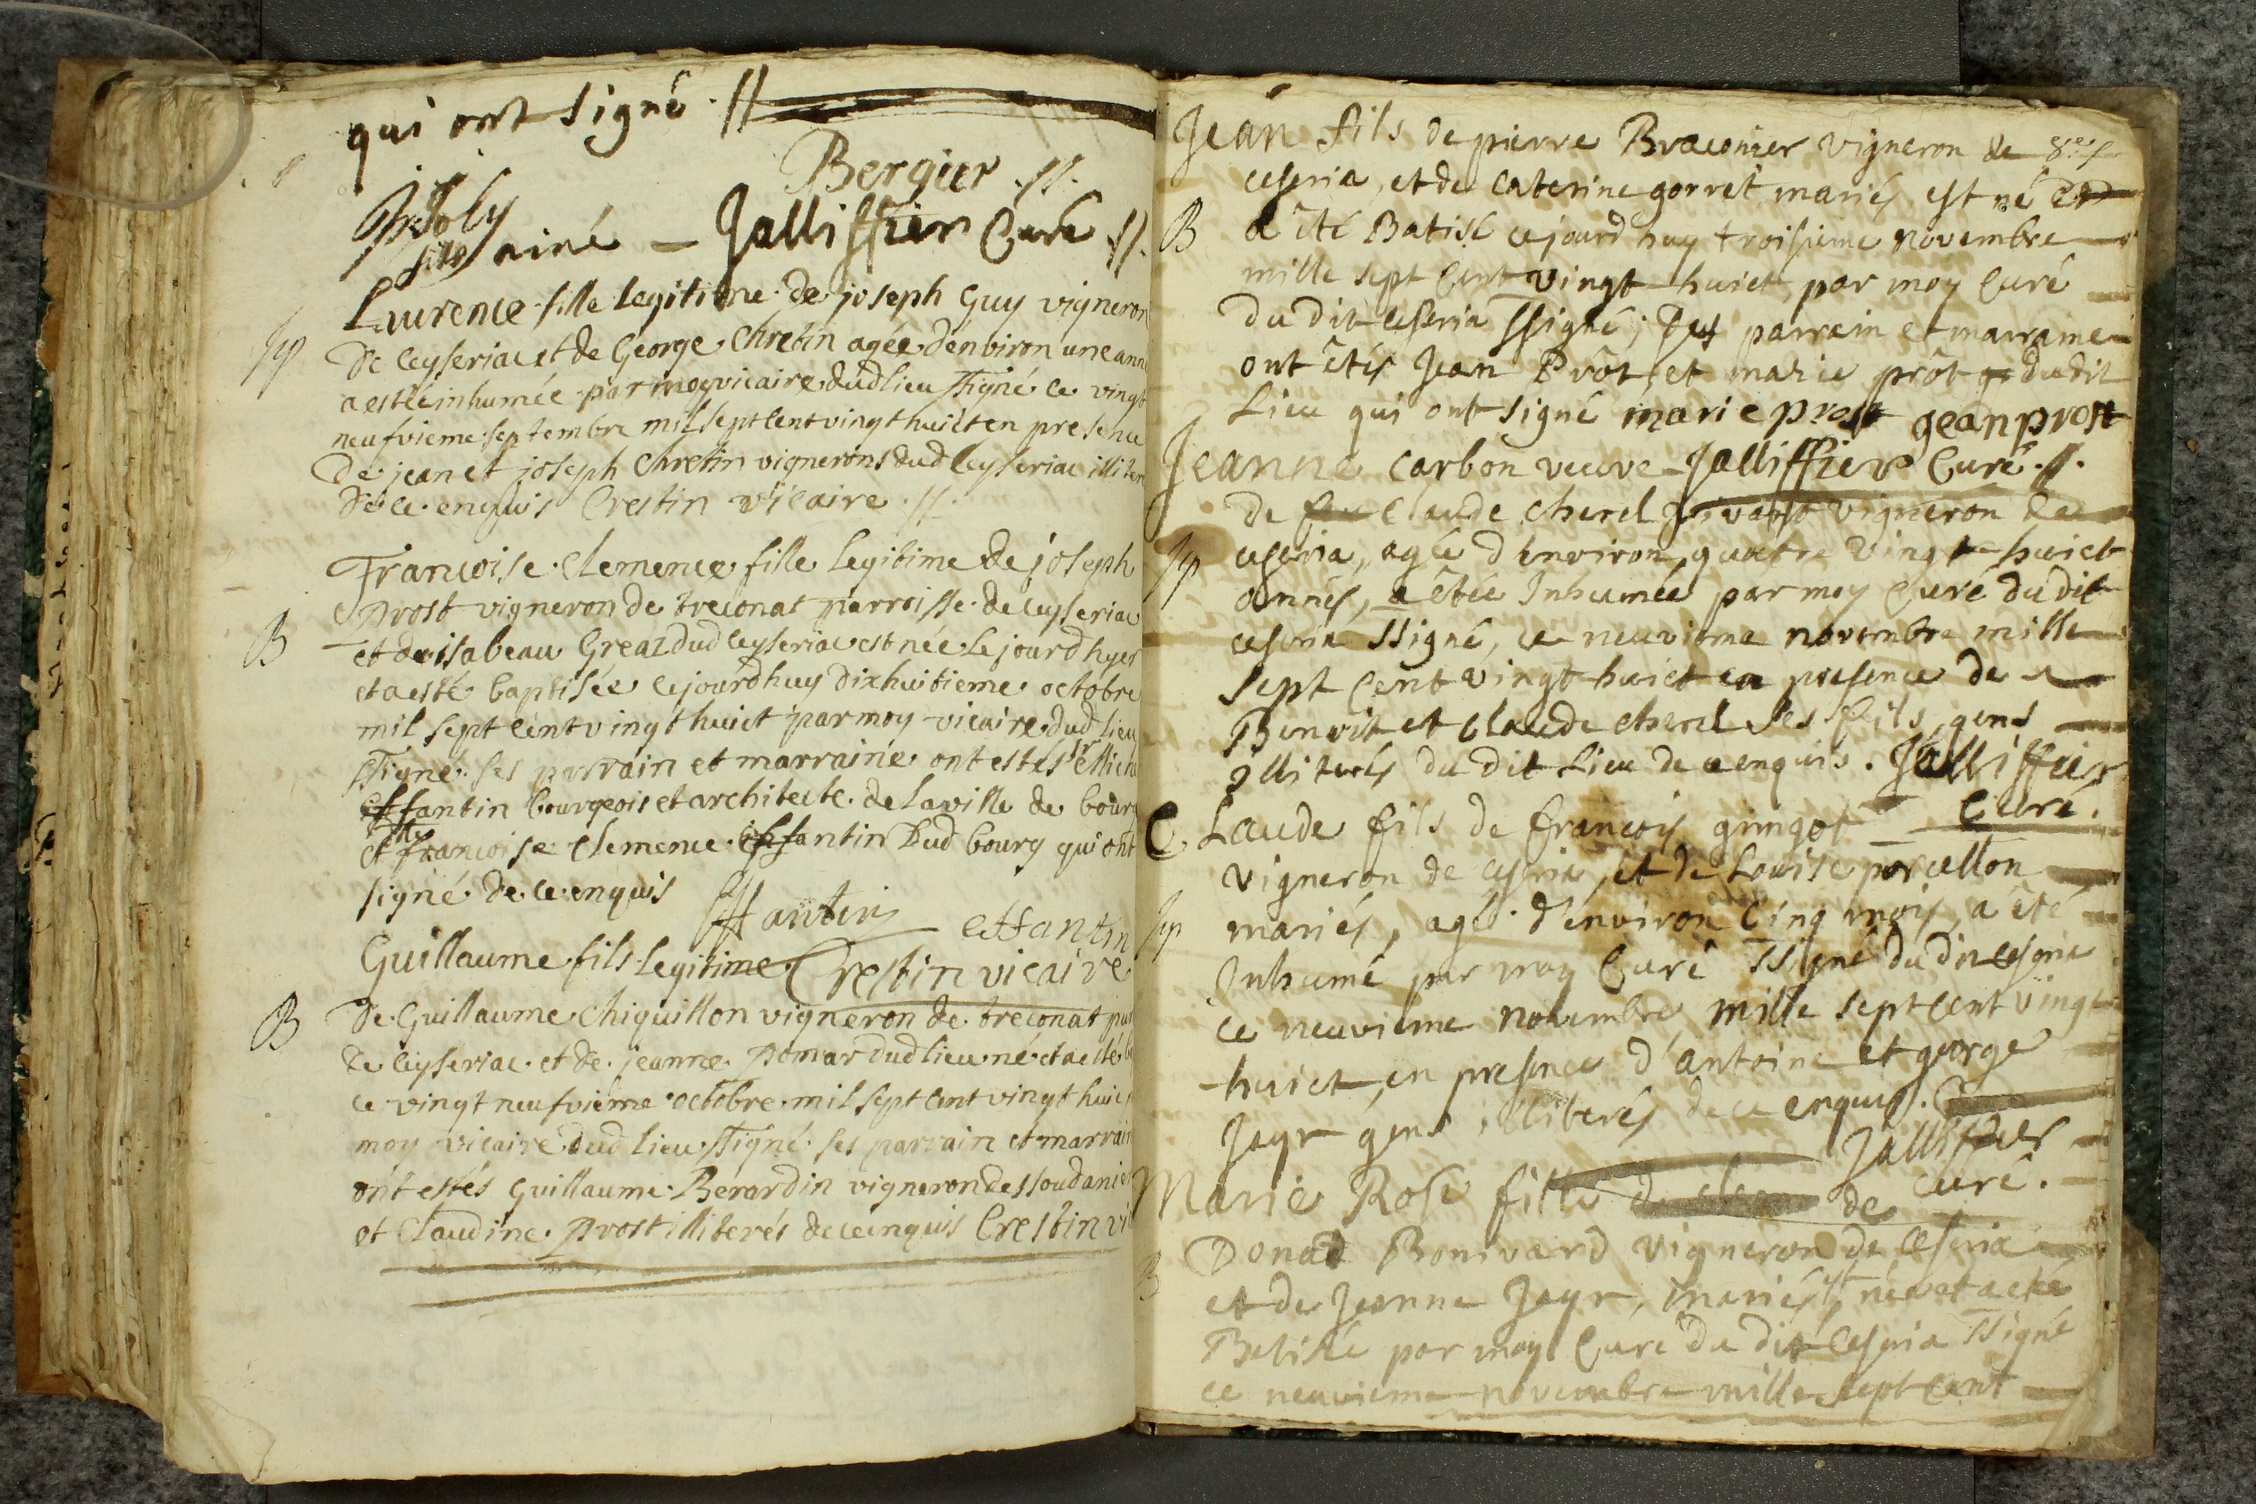 qui ont signé . //
Bergier .//.
Joly
fille ainé – Jalliffier Curé .//.
Laurence fille legitime de joseph Guy vigneron
de Ceyseriac et de George Chretin agée d'environ une ann
a esté inhumée par moy vicaire dud lieu ssigné ce vingt
neufvieme septembre mil sept cent vingt huict en presehce
de jean et joseph Chretin vignerons dud Ceyseriac illiter
de ce enquis Crestin vicaire .//.
Francoise Clemence fille legitime de joseph
prost vigneron de treconat parroisse de Ceyseriac
B et de isabeau Greaz dud Ceyseriac est née le jourd hyer
et a esté baptisée cejourdhuy dixhuitieme octobre
mil sept cent vingt huict par moy vicaire dud lieu
ssigné ses parrain et marraine ont estés sr Miche
Effantin bourgeois et architecte de la ville de bourg
et francoise Clemence Effantin dud bourg qui ont
signé de ce enquis Effantin effantin
Guillaume fils legitime Crestin vicaire
B de Guillaume Chiquillon vigneron de treconat par
de Ceyseriac et de jeanne pomar dud lieu né et a esté b
ce vingt neufvieme octobre mil sept cent vingt huict
moy vicaire dud lieu ssigné ses parrain et marrain
ont estés Guillaume Berardin vigneron des soudanier
et Claudine prost illiterés de ce enquis Crestin vi
Jean fils de pierre Braconier vigneron de
ceseria, et de Caterine gorret mariés est né et
B a été Batisé cejourd huy troisieme novembre
mille sept Cent vingt huict par moy Curé
du dit ceseria ssigné; ses parrain et marraine
ont êtés Jean Prôt et marie prôt dudit
Lieu qui ont signé marie prost gean prost
Jeanne Carbon veuve – Jalliffier Curé .//.
de Claude Cherel vivant vigneron de
ceseria, agée d'environ quatre vingt huict
année, a êtée Inhumée par moy Curé du dit
ceseria ssigné, ce neuvieme novembre mille
sept Cent vingt huict en presence de
Benoit et Claude Cherel ses fils gens
Illiterés du dit Lieu de ce enquis. Jalliffier
Curé.
Claude fils de francois gringot
vigneron de ceseria, et de Louise porcellon
mariés, agé d'environ Cinq mois, a été
Inhumé par moy Curé ssigné du dit ceseria
ce neuvieme novembre mille sept cent vingt
huict, en presence d'antoine et george
Jayr gens illiterés de ce enquis.
Jalliffier
Curé.
Marie Rose fille de
B Donat Bonivard vigneron de ceseria
et de Jeanne Jayr, mariés, est née et a eté
Batisée par moy Curé du dit ceseria ssigné
ce neuvieme novembre mille sept cent